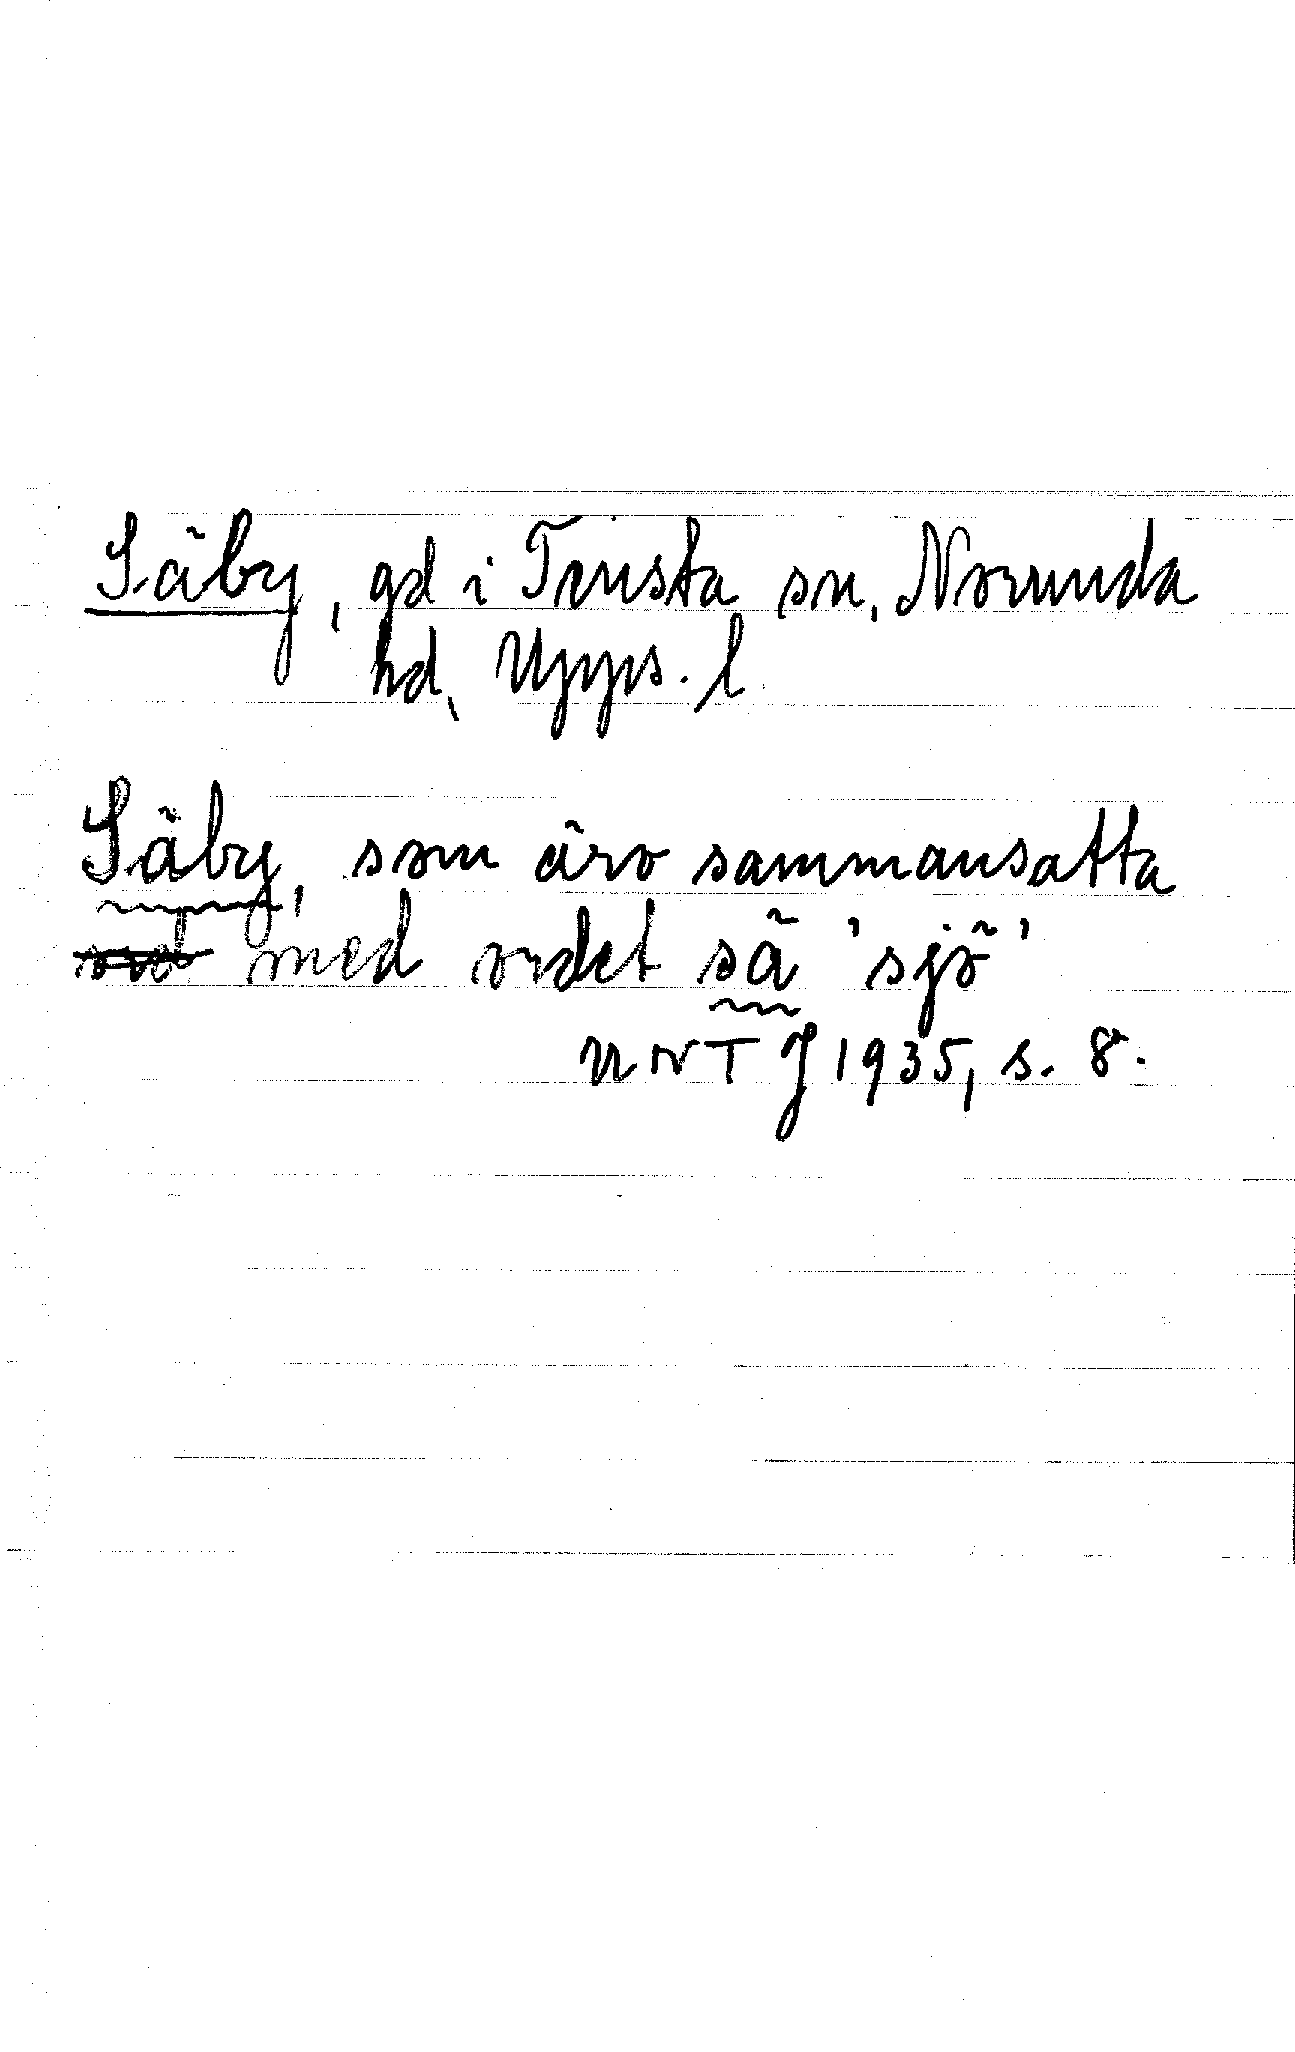 Säby, gd i Tensta sn, Norunda
hd, Upps. l
Säby, som äro sammansatta
ord med ordet sä 'sjö'
UNT J 1935, s. 8.